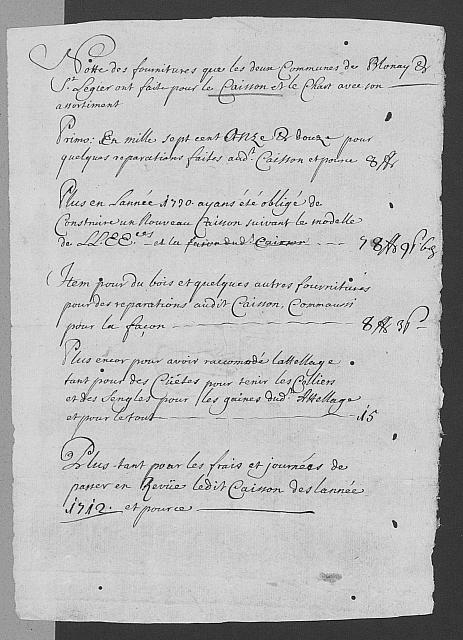 Notte des fournitures que les deux Communes de Blonay Et
St Legier ont faite pour le Caisson et le Chart avec son
assortiment
Primo: En mille sept cent Onze Et douze pour
quelques reparations faites audt Caisson et pource 8 ff
Plus en Lannée 1730 ayans été obligé de
Construire un Nouveau Caisson suivant le modelle
de LL.EE.ces et la façon dudt Caisson 78 ff 9 s 6 d
Item pour du bois et quelques autres fournitures
pour des reparations audit Caisson, Comm aussi
pour la façon 8 ff 3 s
Plus encor pour avoir racomodé lattellage
tant pour des Cüétes pour tenir les Colliers
et des Sengles pour les gaines dudt Attellage
et pour le tout 15
Plus tant pour les frais et journées de
passer en Revüe ledit Caisson des lannée
1712. et pource